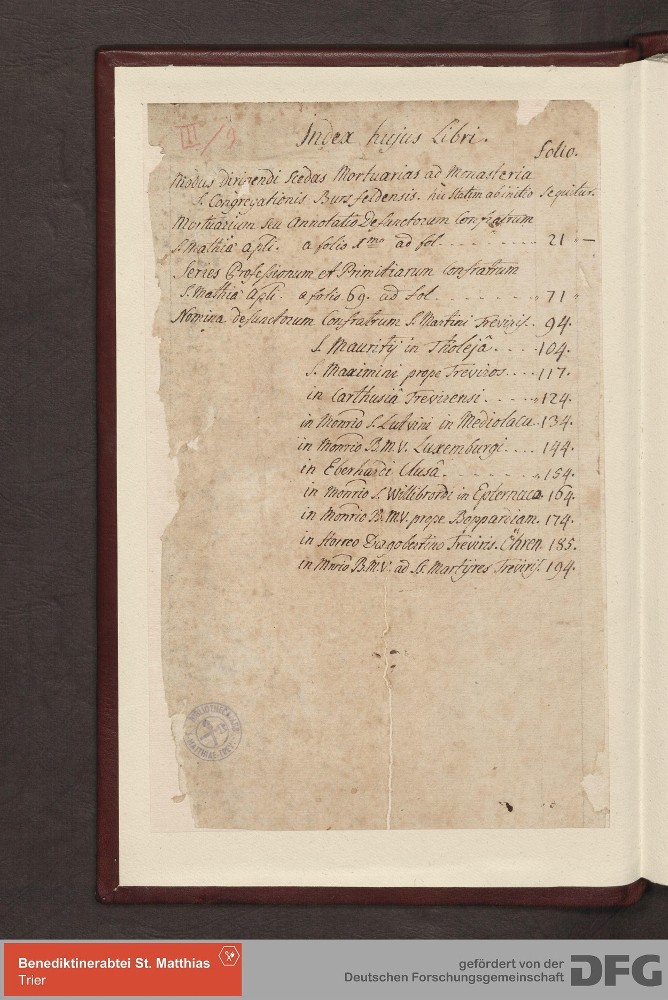 II/9
Index hujus Libri.
Folio.
Modus Dirigendi Scedas Mortuarias ad Monasteria
S. Congregationis Bursfeldensis. hic statim ab initio sequitur.
Mortuarium seu Annotatio Defunctorum Confratrum
S. Mathiæ Apli. a folio 1mo ad fol. - - - - - - - - - 21 -
Series Professionum et Primitiarum Confratrum
S. Mathiæ Apli. a folio 69. ad fol. - - - - - - - 71
Nomina defunctorum Confratrum S. Martini Treviris. 94.
S. Mauritij in Tholejâ - - - - 104.
S. Maximini prope Treviros. . . . 117.
in Carthusiâ Trevirensi. - - - - 124.
in Monrio S. Lutvini in Mediolacu. 134.
in Monrio B.M.V. Luxemburgi. . . . 144.
in Eberhardi Clusâ. - - - - - - - 154.
in Monrio S. Willibrordi in Epternaca 164.
in Monrio B.M.V. prope Boppardiam. 174.
in Horreo Dagobertino Treviris. Öhren 185.
in Mnrio B.M.V. ad SS. Martÿres Treviris. 194.
BIBLIOTHECA
MATTHIAS TREV.
Benediktinerabtei St. Matthias
Trier
gefördert von der
Deutschen Forschungsgemeinschaft
DFG